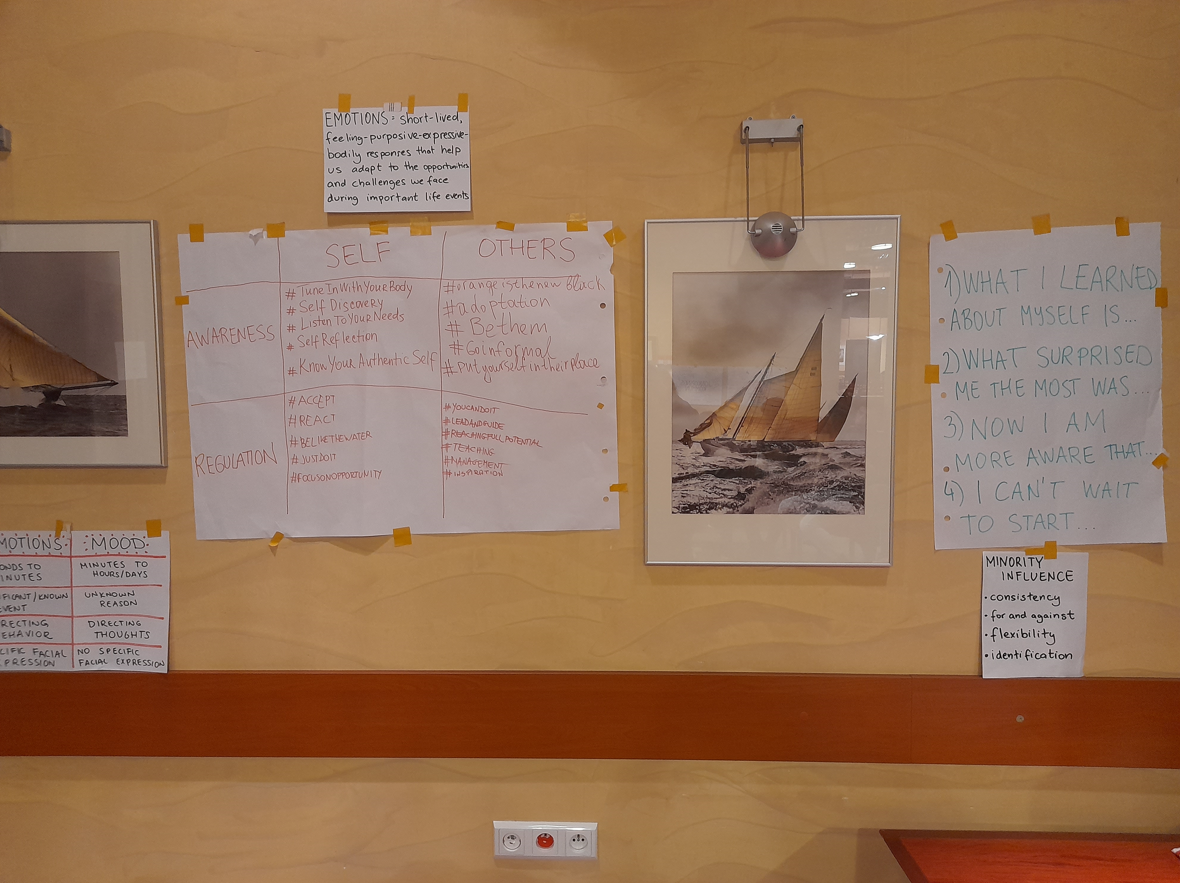 EMOTIONS: short-lived,
feeling-purposive-expressive-
bodily responses that help
us adapt to the opportunities
and challenges we face
during important life events
SELF
OTHERS
AWARENESS
#TuneInWithYourBody
#Self Discovery
#ListenToYourNeeds
#SelfReflection
#KnowYour Authentic Self
#orangeisthenew black
#adoptation
#Bethem
#Goinformal
#putyourselfintheirplace
REGULATION
#ACCEPT
#REACT
#BELIKETHEWATER
#JUSTDOIT
#FOCUSONOPPORTUNITY
#YOUCANDOIT
#LEADANDGUIDE
#REACHINGFULLPOTENTIAL
#TEACHING
#MANAGEMENT
#INSPIRATION
1) WHAT I LEARNED
ABOUT MYSELF IS...
2) WHAT SURPRISED
ME THE MOST WAS...
3) NOW I AM
MORE AWARE THAT...
4) I CAN'T WAIT
TO START...
MOTIONS
MOOD
ONDS TO
INUTES
MINUTES TO
HOURS/DAYS
IFICANT/KNOWN
EVENT
UNKNOWN
REASON
RECTING
EHAVIOR
DIRECTING
THOUGHTS
CIFIC FACIAL
PRESSION
NO SPECIFIC
FACIAL EXPRESSION
MINORITY
INFLUENCE
• consistency
• for and against
• flexibility
• identification